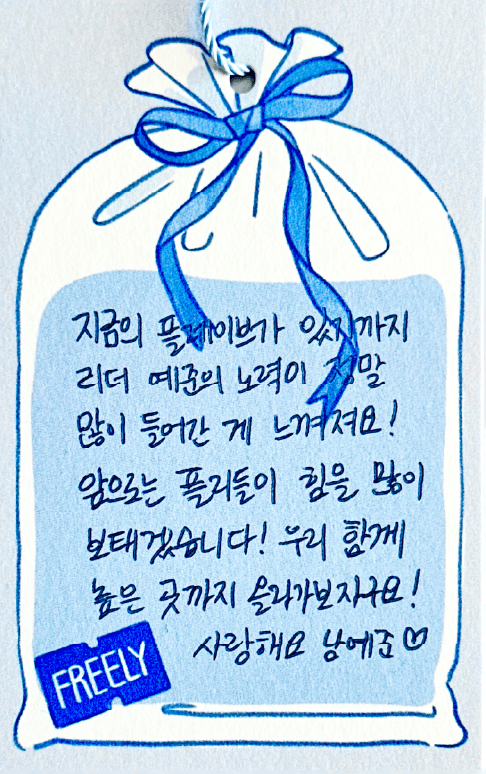 지금의 플레이브가 있기까지
리더 예준의 노력이 정말
많이 들어간 게 느껴져요!
앞으로는 플리들이 힘을 많이
보태겠습니다! 우리 함께
높은 곳까지 올라가보자구요!
사랑해요 남예준♡
FREELY